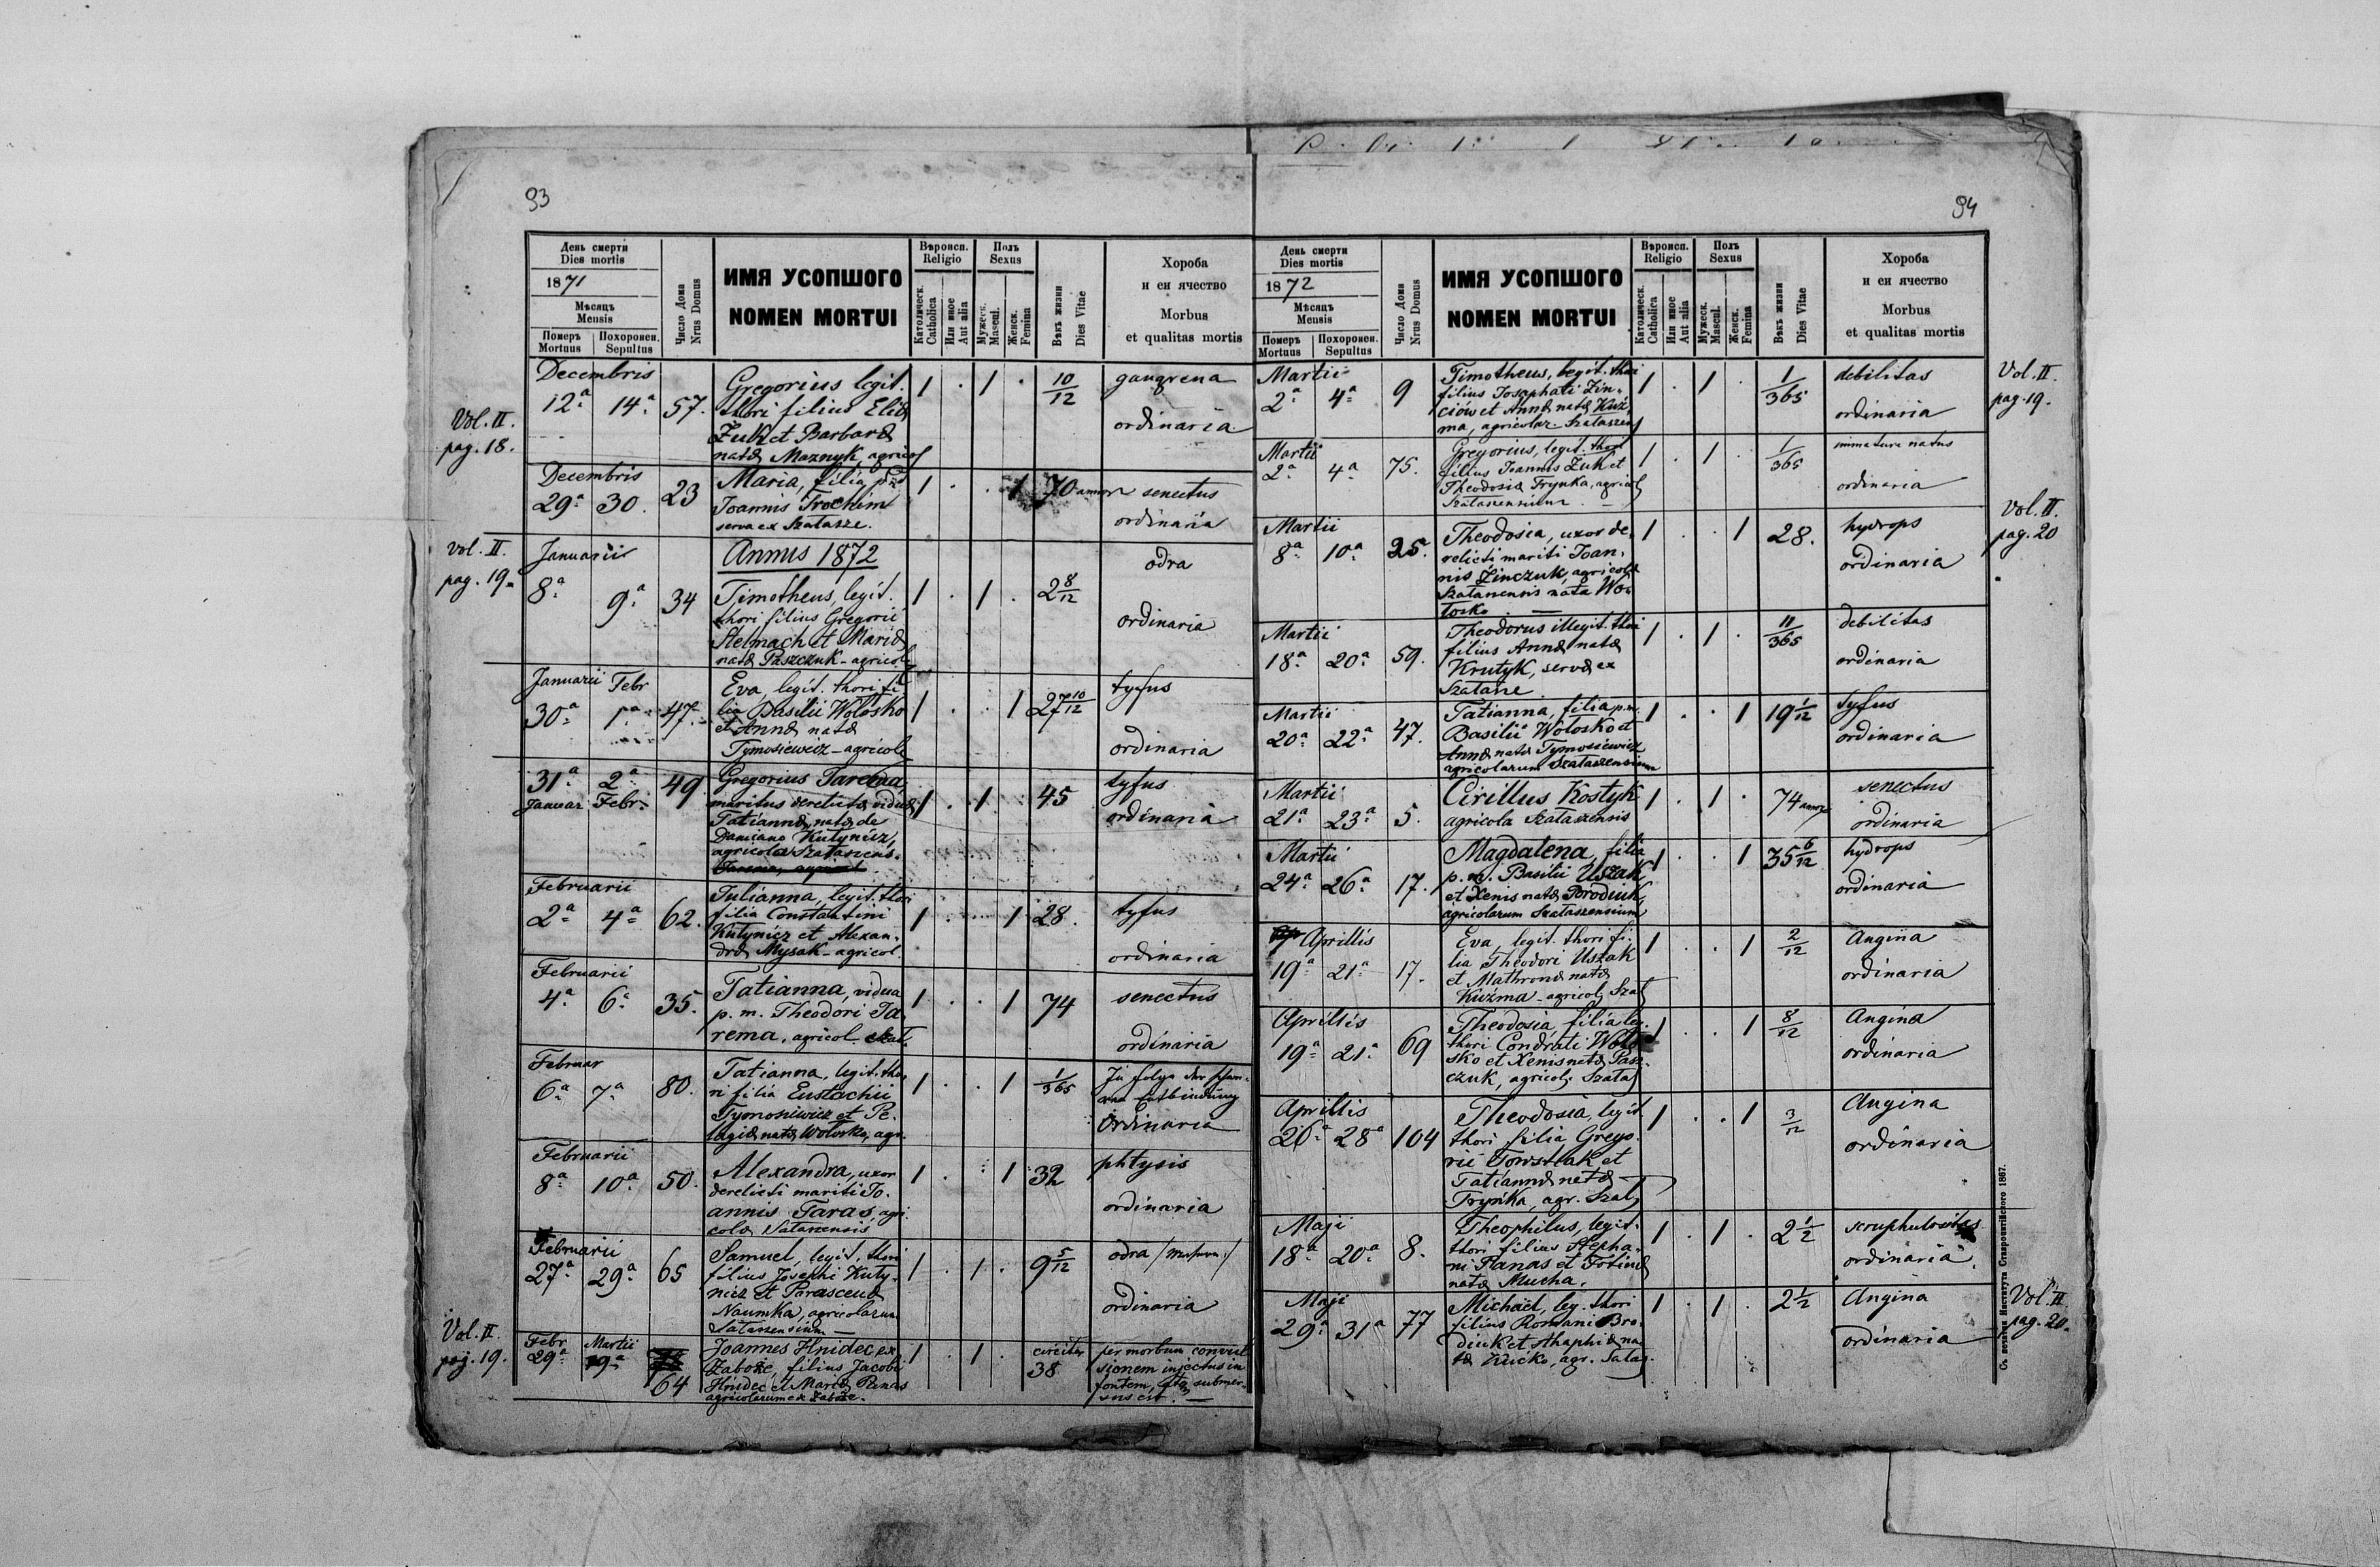 93
День смерти
Dies mortis
1871
Мѣсяць
Mensis
Померъ
Mortuus
Похоронен.
Sepultus
Число Дома
Nrus Domus
ИМЯ УСОПШОГО
NOMEN MORTUI
Вѣроисп.
Religio
Католическ.
Catholica
Или иное
Aut alia
Полъ
Sexus
Мужеск.
Mascul.
Женск.
Femina
Вѣкъ жизни
Dies Vitae
Хороба
и еи ячество
Morbus
et qualitas mortis
Vol. II.
pag. 18.
Decembris
12a 14a 57.
Gregorius legit.
thori filius Eliæ
Żuk et Barbaræ
natæ Maznyk, agricol
1 . 1 . 10/12
gangrena
ordinaria
Decembris
29a 30. 23
Maria, filia
Joannis Trochim
serva ex Szatasze.
1 . . 1 70 annor
senectus
ordinaria
Vol. II.
pag. 19.
Annus 1872
Januarii
8a 9a 34
Timotheus, legit.
thori filius Gregorii
Stelmach et Mariæ
natæ Paszczuk - agricol
1 . 1 . 2 8/12
odra
ordinaria
Januarii Febr
30a 1a 47.
Eva, legit. thori fi
lia Basilii Wołosko
et Annæ natæ
Tymosiewicz - agricol
1 . . 1 27 10/12
tyfus
ordinaria
31a 2a 49
Januar Febr.
Gregorius Tarema,
maritus derelictæ viduæ
Tatiannæ, natæ de
Damiano Kutynicz,
agricola Szataszens.
1 . 1 . 45
tyfus
ordinaria
Februarii
2a 4a 62.
Julianna, legit. thori
filia Constantini
Kutynicz et Alexan-
dræ Mysak - agricol.
1 . . 1 28.
tyfus
ordinaria
Februarii
4a 6a 35.
Tatianna, vidua
p. m. Theodori Ta
rema, agricol. Szat.
1 . . 1 74
senectus
ordinaria
Februar
6a 7a 80.
Tatianna, legit. tho-
ri filia Eustachii
Tymosiwicz et Pe-
lagiæ natæ Wołosko, agr.
1 . . 1 1/365
In folge der schwe-
ren Entbindung
Ordinaria
Februarii
8a 10a 50.
Alexandra, uxor
derelicti mariti Jo-
annis Taras, agri
colæ Sataszensis
1 . . 1 32
phtysis
ordinaria
Februarii
27a 29a 65
Samuel, legit. thori
filius Josephi Kuty-
nicz et Parasceuæ
Naumka, agricolarum
Sataszensium
1 . 1 . 9 5/12
odra
ordinaria
Vol. II.
pag. 19.
Febr Martii
29a 64
Joannes Hnidec, ex
Zaboże, filius Jacobi
Hnidec et Mariæ Panas
agricolarum ex Zaboże.
1 . 1 . circiter
38
per morbum convul
sionem injectus in
fontem, submer-
sus est.
94
День смерти
Dies mortis
1872
Мѣсяць
Mensis
Померъ
Mortuus
Похоронен.
Sepultus
Число Дома
Nrus Domus
ИМЯ УСОПШОГО
NOMEN MORTUI
Вѣроисп.
Religio
Католическ.
Catholica
Или иное
Aut alia
Полъ
Sexus
Мужеск.
Mascul.
Женск.
Femina
Вѣкъ жизни
Dies Vitae
Хороба
и еи ячество
Morbus
et qualitas mortis
Martii
2a 4a 9
Timotheus, legit. thori
filius Josaphati Zin-
ciów et Annæ natæ Kuź-
ma, agricolar. Szataszen
1 . 1 . 1/365
debilitas
ordinaria
Vol. II.
pag. 19.
Martii
2a 4a 75.
Gregorius, legit. thori
filius Joannis Żuk et
Theodosiæ Frynka, agricol
Szataszensium.
1 . 1 . 1/365
immature natus
ordinaria
Vol. II.
pag. 20
Martii
8a 10a 25.
Theodosia, uxor de-
relicti mariti Joan-
nis Zinczuk, agricolæ
Szataszensis nata Wo-
łosko
1 . . 1 28.
hydrops
ordinaria
Martii
18a 20a 59.
Theodorus illegit. thori
filius Annæ natæ
Krutyk, servæ ex
Szatasze.
1 . 1 . 11/365
debilitas
ordinaria
Martii
20a 22a 47.
Tatianna, filia p.m.
Basilii Wołosko et
Annæ natæ Tymosiewicz
agricolarum Szataszensium
1 . . 1 19 1/12
tyfus
ordinaria
Martii
21a 23a 5.
Cirillus Kostyk
agricola Szataszensis
1 . 1 . 74 annor
senectus
ordinaria
Martii
24a 26a 17.
Magdalena, filia
p. m. Basilii Uszak
et Xenis natæ Borodiuk,
agricolarum Szataszensium
1 . . 1 35 6/12
hydrops
ordinaria
Aprillis
19a 21a 17.
Eva, legit. thori fi-
lia Theodori Uszak
et Mathronæ natæ
Kuźma - agricol Szat
1 . . 1 2/12
Angina
ordinaria
Aprillis
19a 21a 69
Theodosia, filia leg.
thori Condrati Woło
sko et Xenis natæ Pasz-
czuk, agricol Szatas
1 . . 1 8/12
Angina
ordinaria
Aprillis
26a 28a 104
Theodosia, legit
thori filia Grego-
rii Towstiak et
Tatiannæ natæ
Frynka, agr. Szat
1 . . 1 3/12
Angina
ordinaria
Maji
18a 20a 8.
Theophilus, legit.
thori filius Stepha-
ni Panas et Fotinæ
natæ Mucha.
1 . 1 . 2 1/2
scruphulositas
ordinaria
Maji
29a 31a 77
Michael, leg. thori
filius Romani Bro-
diuk et Ahaphiæ na-
tæ Kućko, agr. Satas.
1 . 1 . 2 1/2
Angina
ordinaria
Vol. II
pag. 20.
Съ печатни Института Ставропигійского 1867.